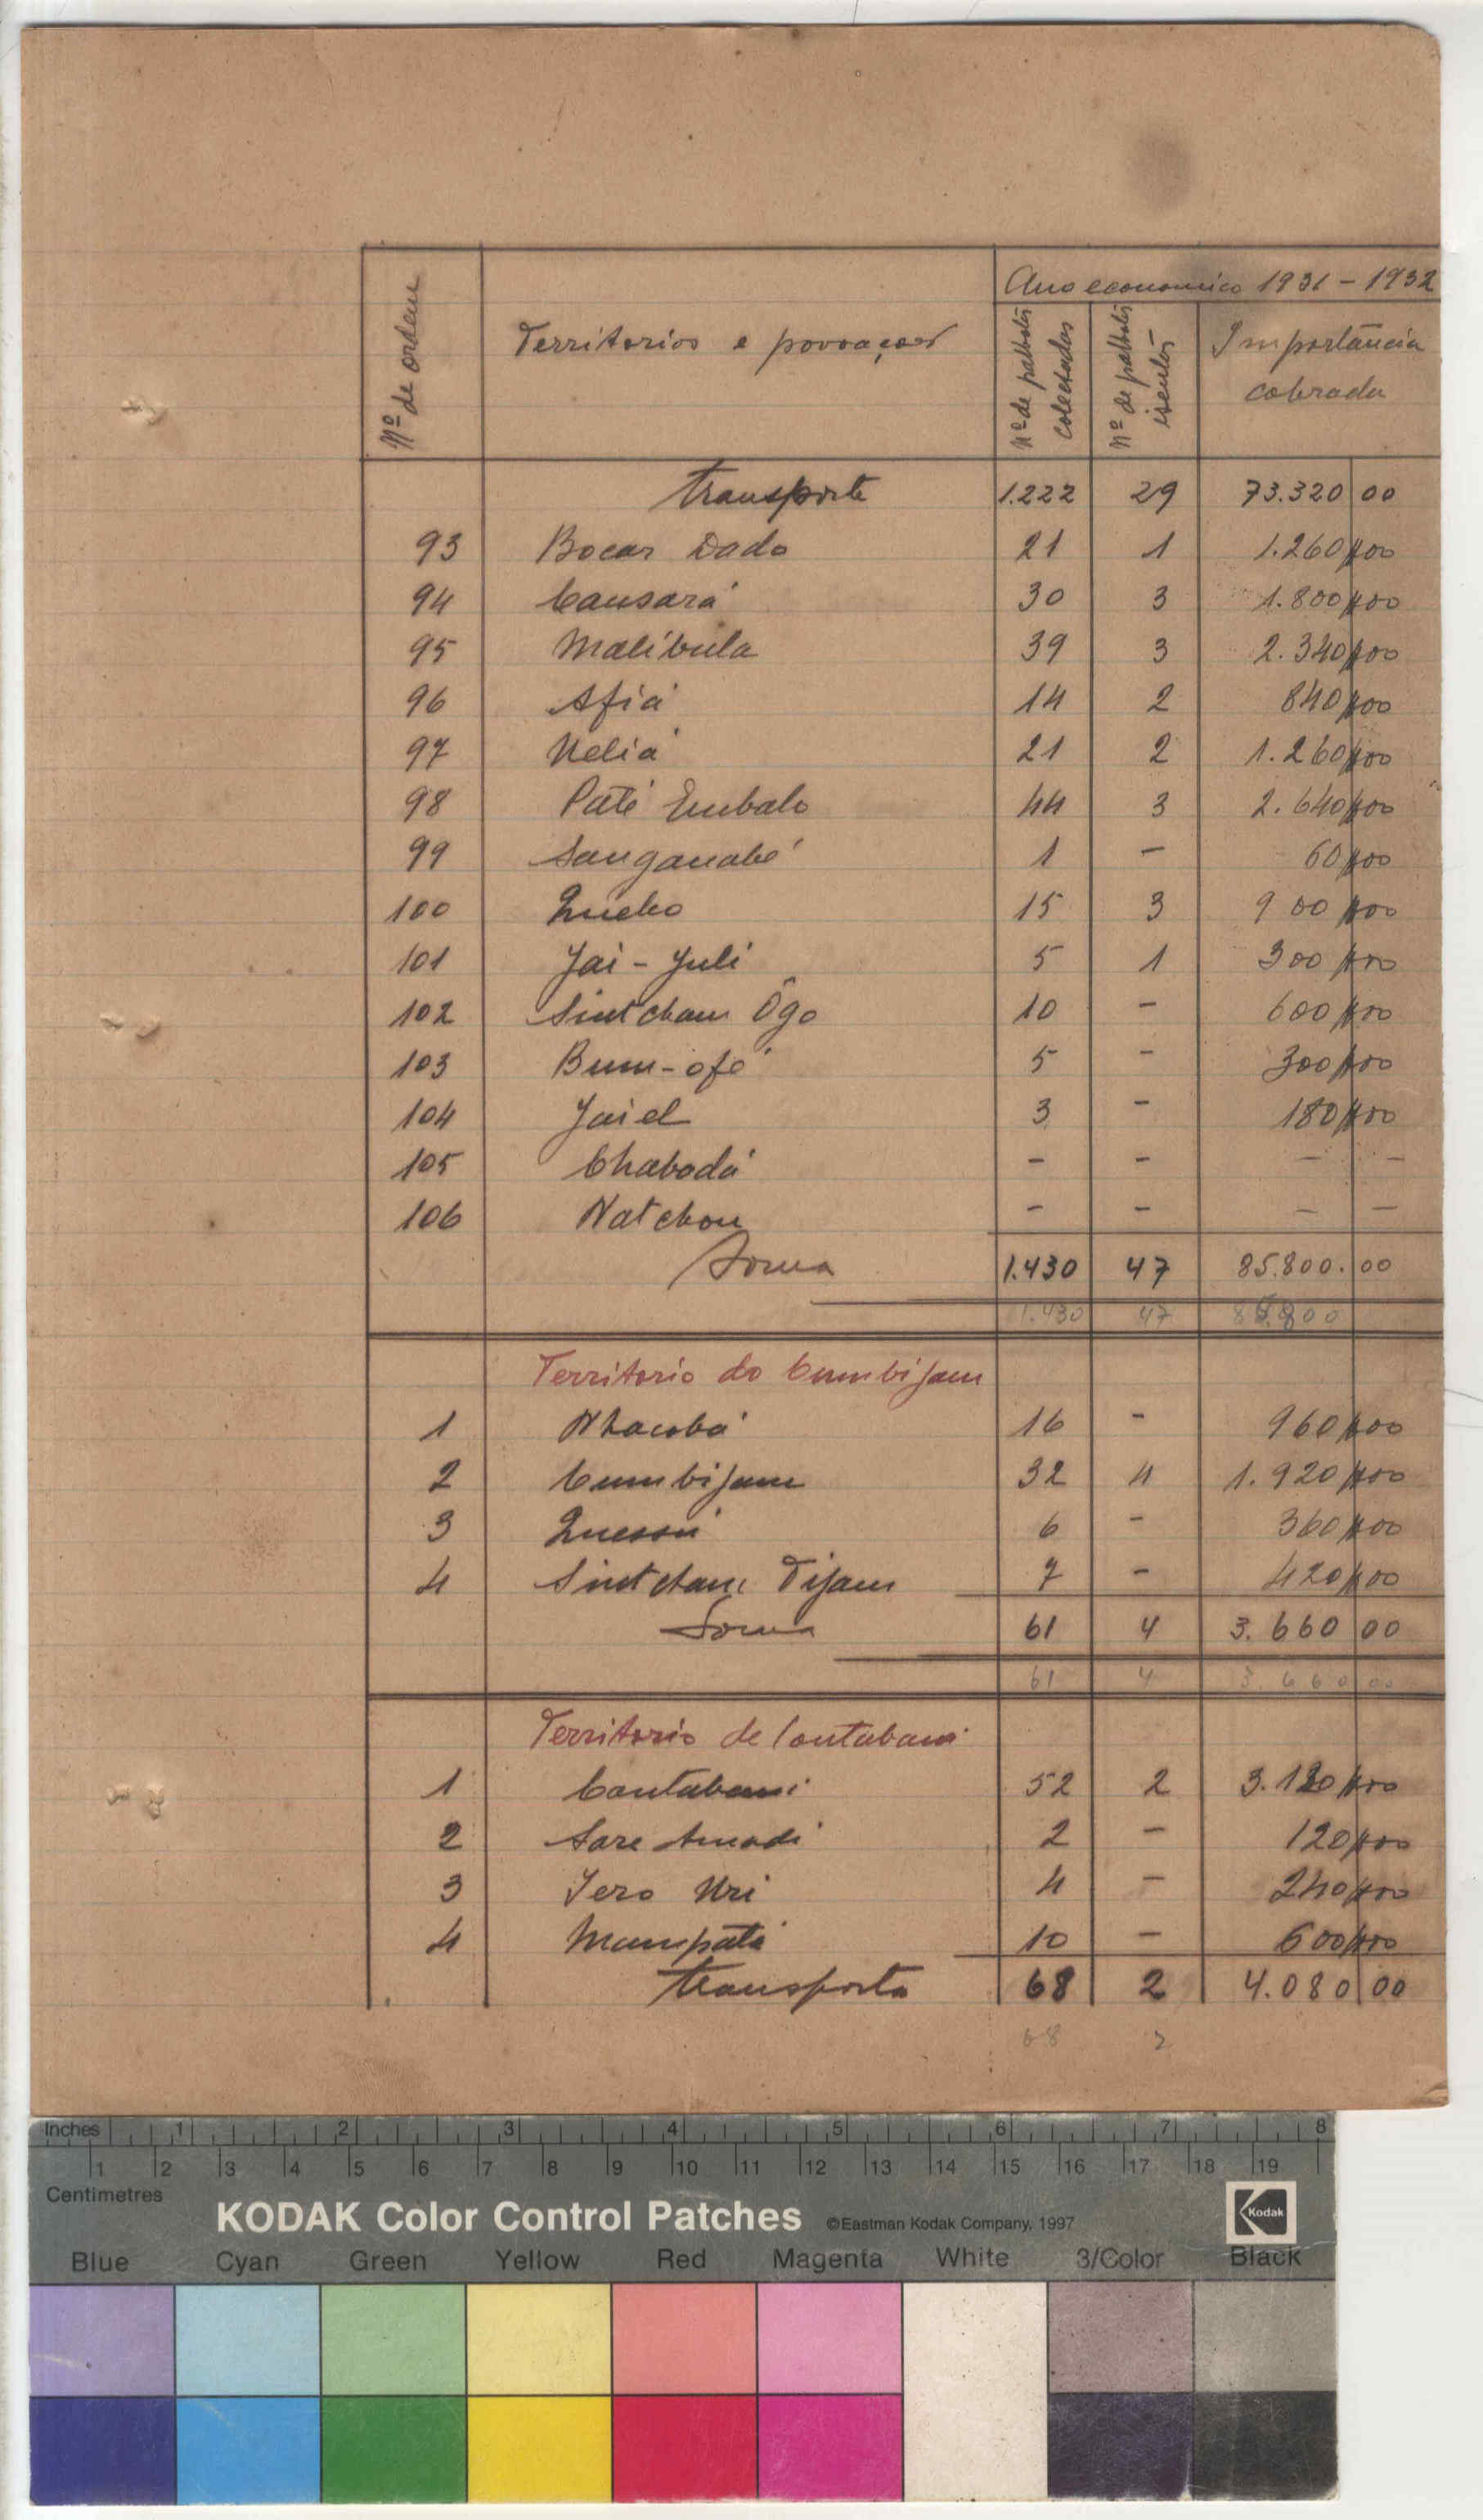 Ano economico 1931 - 1932
Nº de ordem
Territorios e povoações
Nº de palhotas colectadas
Nº de palhotas isentas
Importância cobrada
Transporte 1.222 29 73.320 00
93 Bocar Dado 21 1 1.260$00
94 Cansará 30 3 1.800$00
95 Malibula 39 3 2.340$00
96 Afiá 14 2 840$00
97 Ueliá 21 2 1.260$00
98 Paté Embalo 44 3 2.640$00
99 Sanganabé 1 - 60$00
100 Quebo 15 3 900$00
101 Jai - Juli 5 1 300$00
102 Sintcham Ôgo 10 - 600$00
103 Bum-ofé 5 - 300$00
104 Jaiel 3 - 180$00
105 Chabodá - - - -
106 Natchon - - - -
Soma 1.430 47 85.800.00
1.430 47 85.800
Territorio do Cumbijam
1 Nhacobá 16 - 960$00
2 Cumbijam 32 4 1.920$00
3 Quessui 6 - 360$00
4 Sintcham Tijam 7 - 420$00
Soma 61 4 3.660 00
61 4 3.660 00
Territorio de Contabani
1 Contabani 52 2 3.120$00
2 Sare Amadi 2 - 120$00
3 Iero Uri 4 - 240$00
4 Mampatá 10 - 600$00
Transporta 68 2 4.080 00
68 2
Inches 1 2 3 4 5 6 7 8
1 2 3 4 5 6 7 8 9 10 11 12 13 14 15 16 17 18 19
Centimetres
KODAK Color Control Patches ©Eastman Kodak Company, 1997 Kodak
Blue Cyan Green Yellow Red Magenta White 3/Color Black